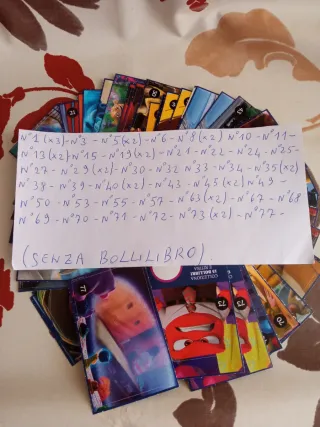 N°1 (x3) - N°3 - N°5 (x2) - N°6 - N°8 (x2) N°10 - N°11 -
N°13 (x2) N°15 - N°19 (x2) - N°21 - N°22 - N°24 - N°25 -
N°27 - N°29 (x2) - N°30 - N°32 N°33 - N°34 - N°35 (x2)
N°38 - N°39 - N°40 (x2) - N°43 - N°45 (x2) N°49 -
N°50 - N°53 - N°55 - N°57 - N°63 (x2) - N°67 - N°68
N°69 - N°70 - N°71 - N°72 - N°73 (x2) - N°77 -
(SENZA BOLLILIBRO).
77
COLLEZIONA
73
73